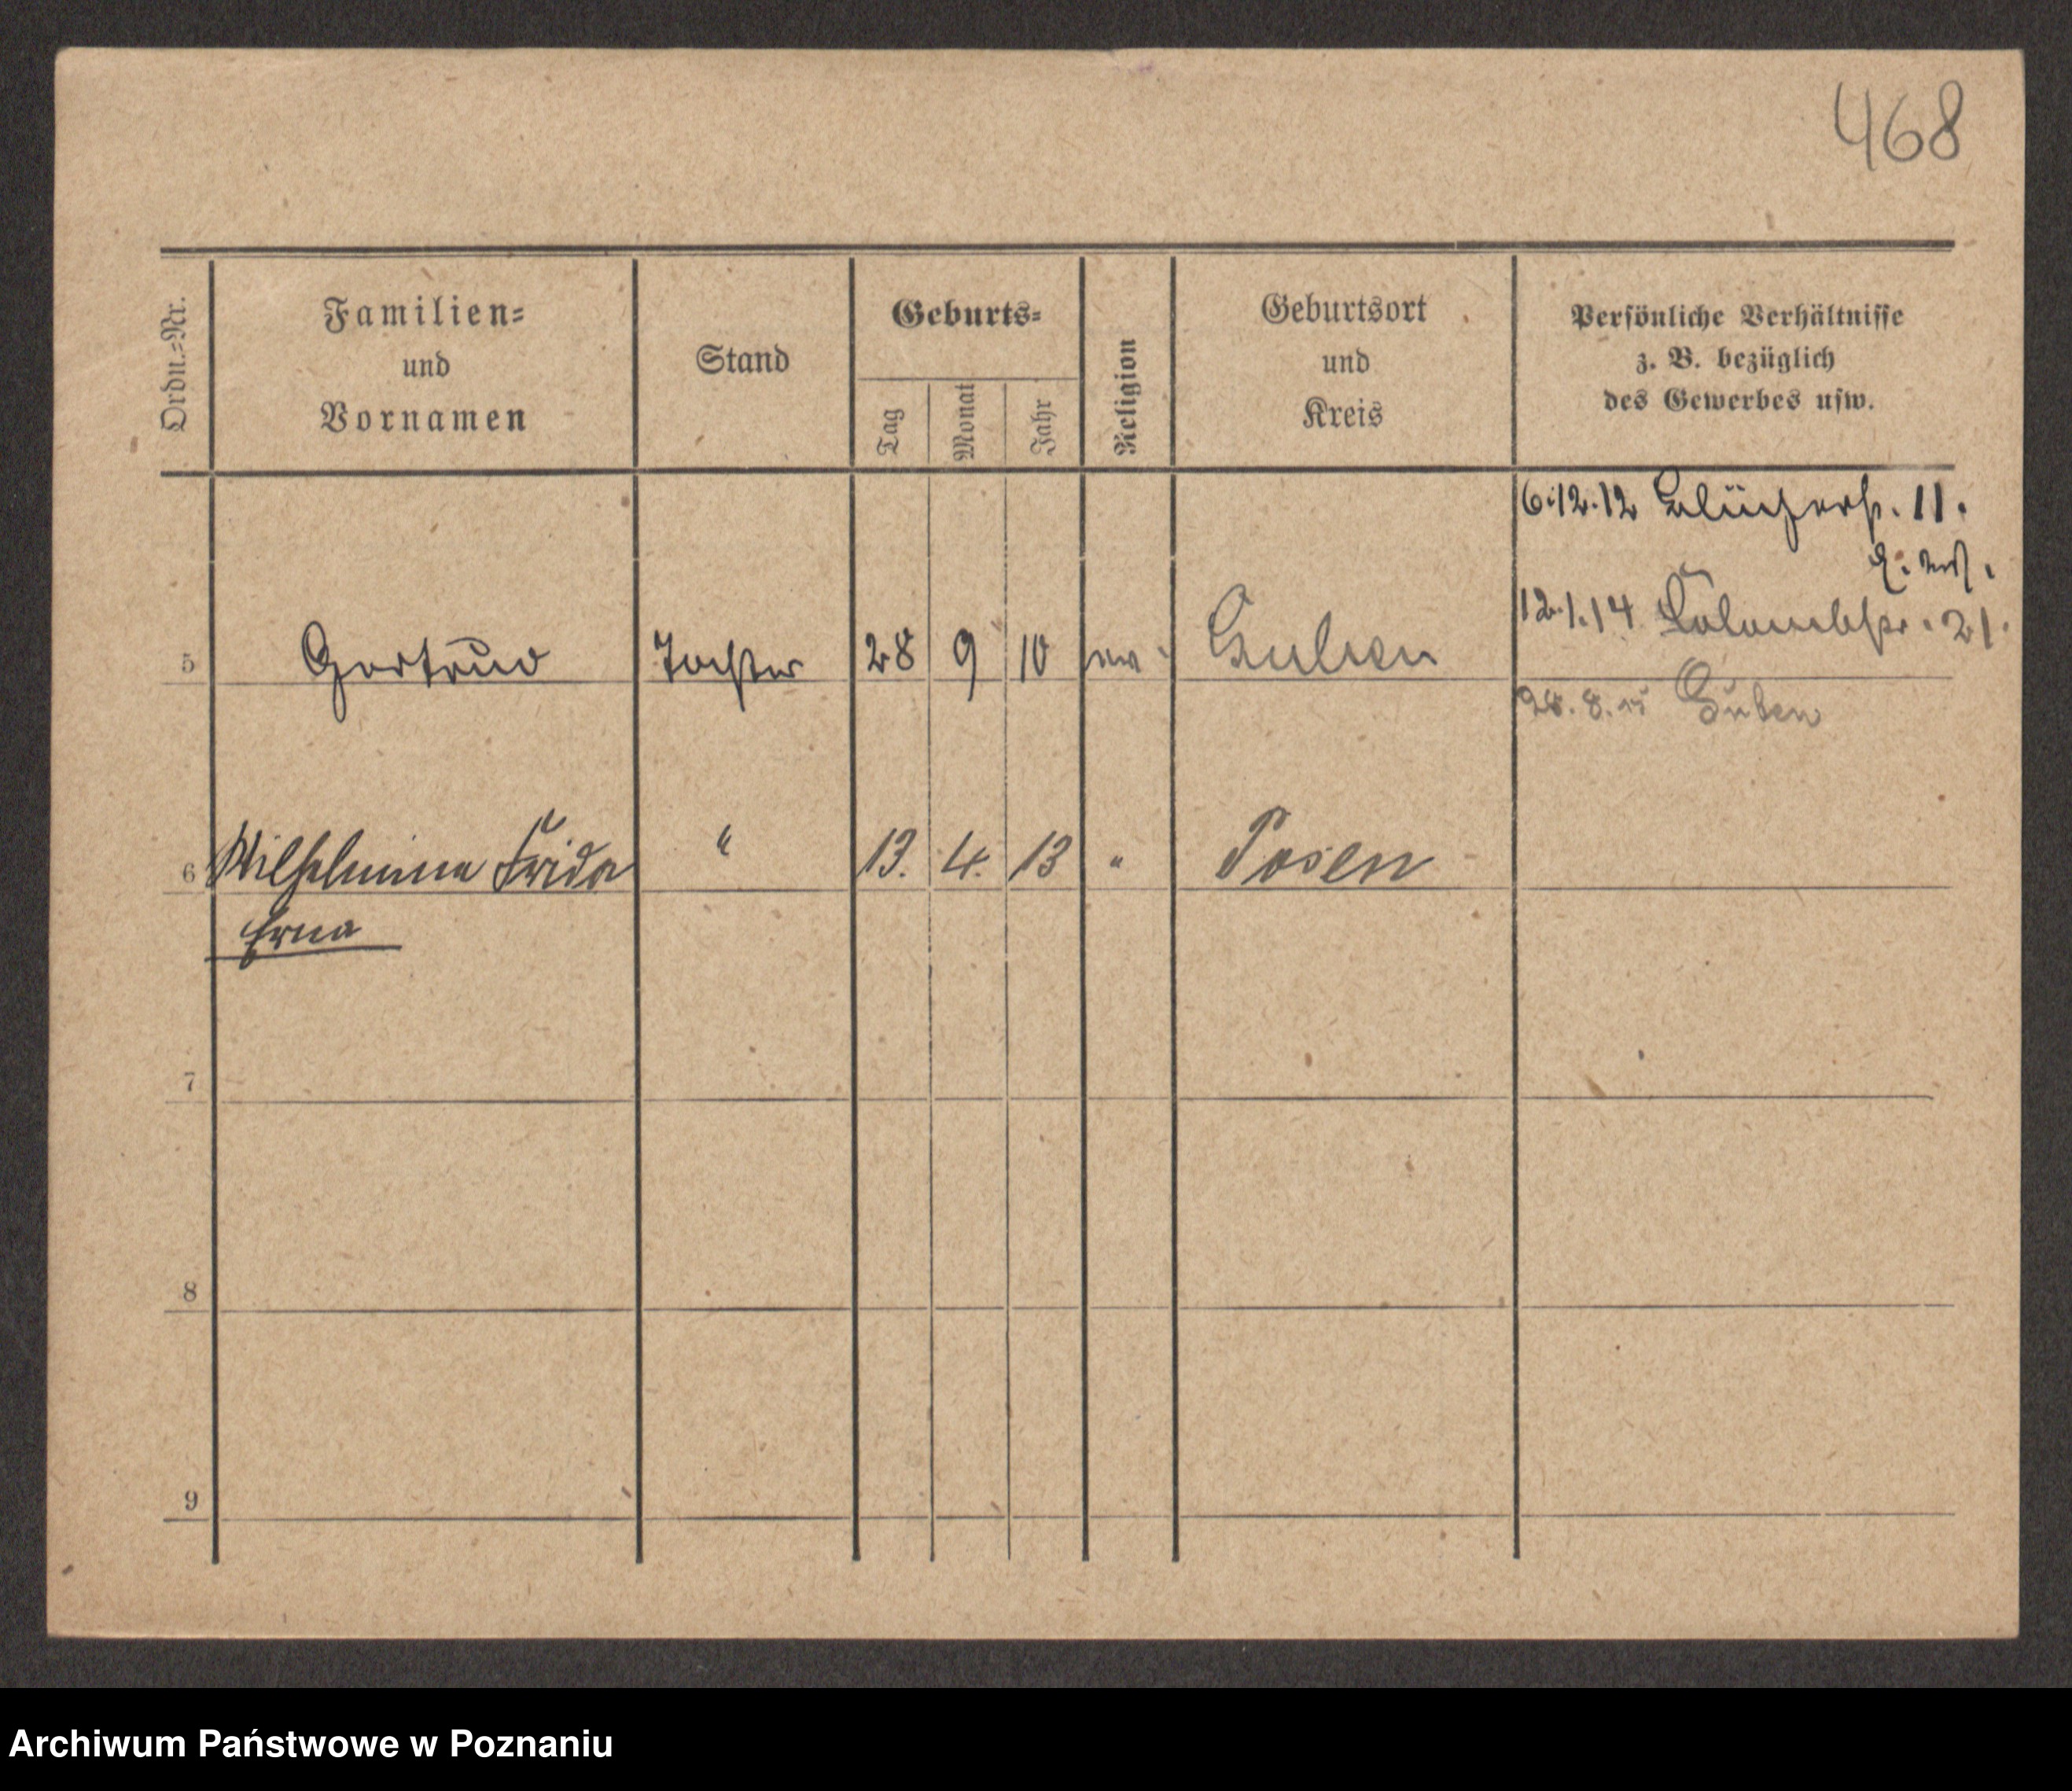 468
Ordn.-Nr.
Familien-
und
Vornamen
Stand
Geburts-
Tag
Monat
Jahr
Religion
Geburtsort
und
Kreis
Persönliche Verhältnisse
z. B. bezüglich
des Gewerbes usw.
6.12.12 Blücherstr. 11.
12.1.14 Kolombstr. 21.
5 Gertrud Tochter 28 9 10 ev. Guben
28.8.15 Guben
6 Wilhelmine Frida " 13. 4. 13 " Posen
Erna
7
8
9
Archiwum Państwowe w Poznaniu